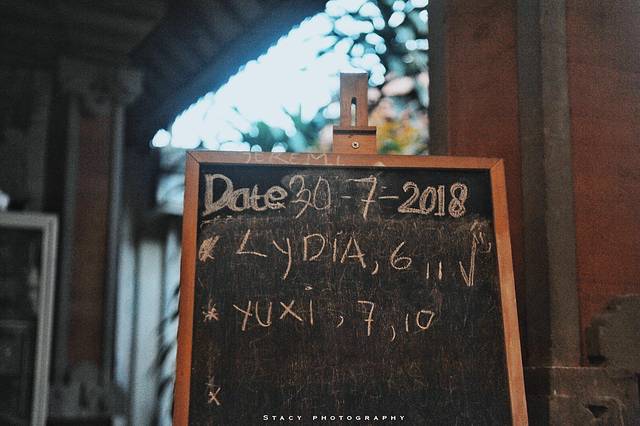 JEREMI
Date 30-7-2018
* LYDIA, 6, 11 √
* YUXI, 7, 10
x
STACY PHOTOGRAPHY